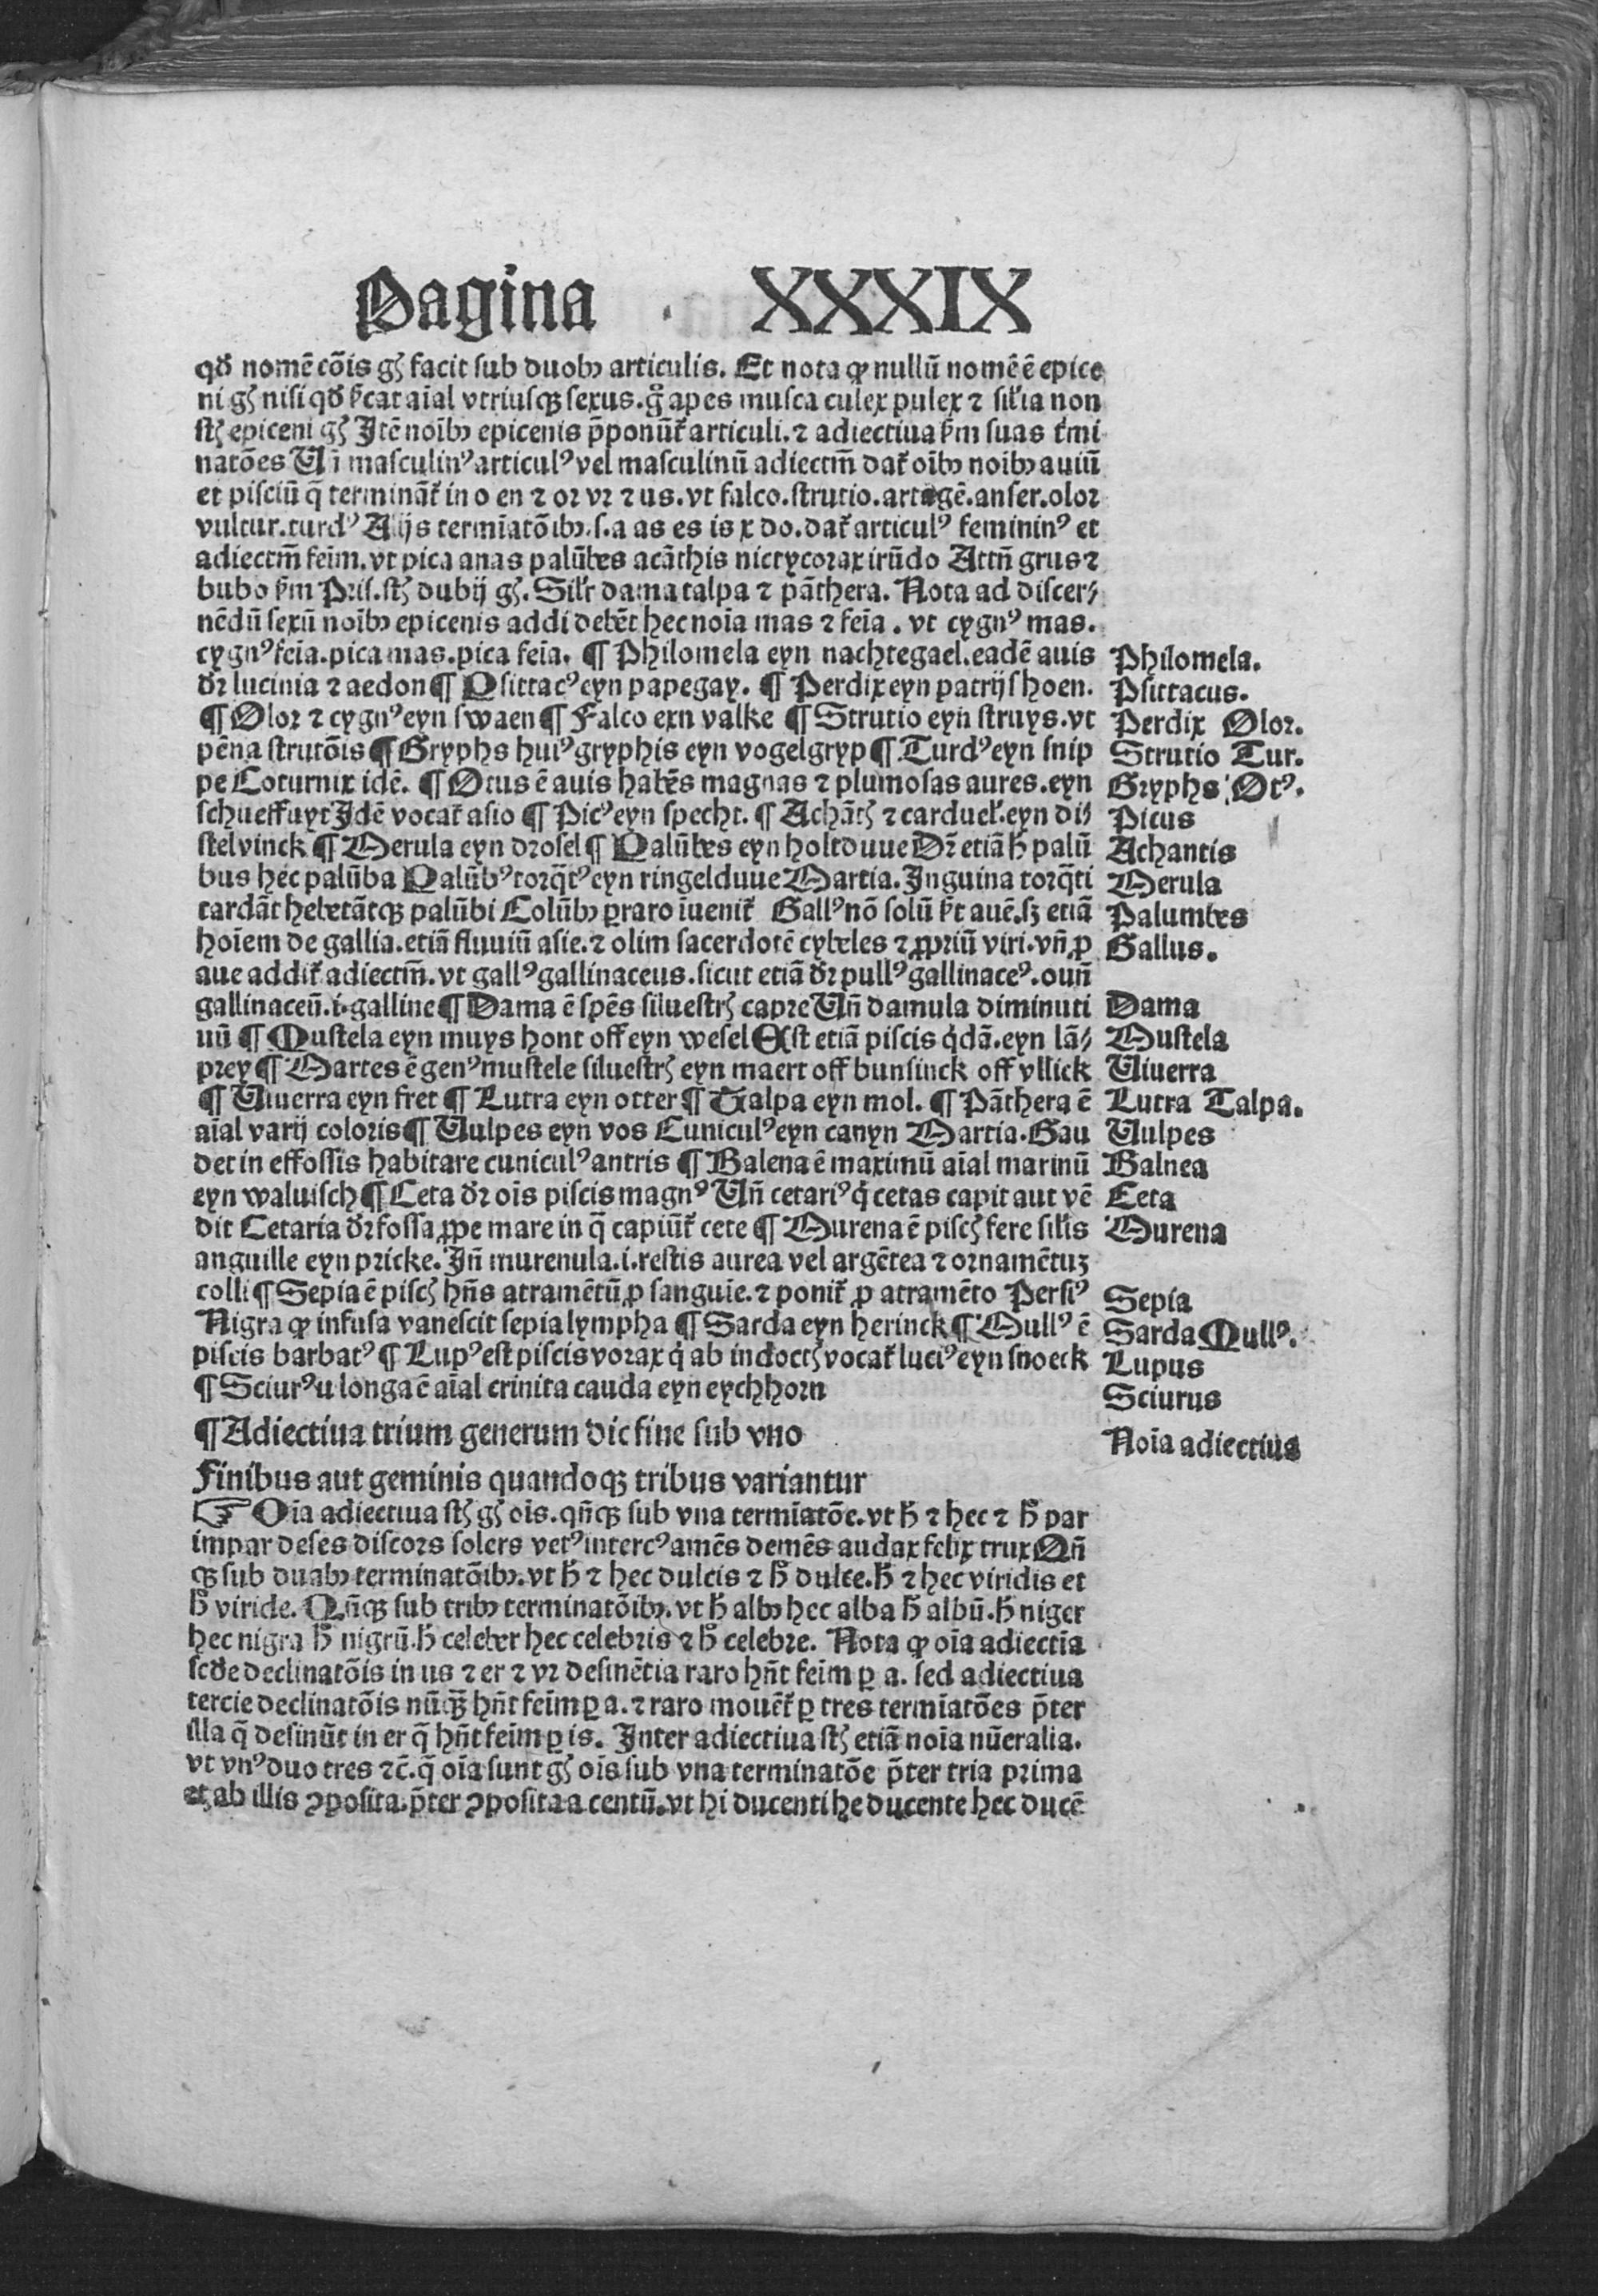 Pagina XXXIX
qđ nomē cōis gꝫ facit sub duobꝰ articulis. Et nota ꝙ nullū nomē ē epice
ni gꝫ nisi qđ ſ̄cat aīal vtriusqꝫ sexus. g̊ apes musca culex pulex ⁊ sil̄ia non
st̄ epiceni gꝫ Itē noībꝫ epicenis p̄ponūt̄ articuli. ⁊ adiectiua ſ̄m suas t̄mi
natōes Uī masculinꝰ articulꝰ vel masculinū adiectm̄ dat̄ oībꝫ noībꝫ auiū
et pisciū q̄ termināt̄ in o en ⁊ or vr ⁊ us. vt falco. strutio. artagē. anser. olor
vultur. turdꝰ Alijs termīatōibꝫ. s. a as es is x do. dat̄ articulꝰ femininꝰ et
adiectm̄ feīm. vt pica anas palūbes acāthis nictycorax irūdo Attn̄ grus ⁊
bubo ſ̄m Pris. st̄ dubij gꝫ. Sil̄r dama talpa ⁊ pāthera. Nota ad discer⸗
nēdū sexū noībꝫ epicenis addi debēt hec noīa mas ⁊ feīa. vt cygnꝰ mas.
cygnꝰ feīa. pica mas. pica feīa. ¶ Philomela eyn nachtegael. eadē auis
dr̄ lucinia ⁊ aedon ¶ Psittacꝰ eyn papegay. ¶ Perdix eyn patrijshoen.
¶ Olor ⁊ cygnꝰ eyn swaen ¶ Falco exn valke ¶ Strutio eyn struys. vt
pēna strutōis ¶ Gryphs huiꝰ gryphis eyn vogelgryp ¶ Turdꝰ eyn snip
pe Coturnix idē. ¶ Otus ē auis habēs magnas ⁊ plumosas aures. eyn
schueffuyt Idē vocat̄ asio ¶ Picꝰ eyn specht. ¶ Achātꝫ ⁊ carduel̄. eyn di⸗
stelvinck ¶ Merula eyn drosel ¶ Palūbes eyn holtduue Dr̄ etiā ħ palū
bus hec palūba Palūbꝰ torq̄tꝰ eyn ringelduue Martia. Inguina torq̄ti
tardāt hebetātqꝫ palūbi Colūbꝫ ꝑraro īuenit̄ Gallꝰ nō solū ſ̄t auē. sꝫ etiā
hoīem de gallia. etiā fluuiū asie. ⁊ olim sacerdotē cybeles ⁊ ꝓpriū viri. vn̄ ꝓ
aue addit̄ adiectm̄. vt gallꝰ gallinaceus. sicut etiā dr̄ pullꝰ gallinaceꝰ. ouū
gallinaceū. i. galline ¶ Dama ē spēs siluestrꝫ capre Un̄ damula diminuti
uū ¶ Mustela eyn muys hont off eyn wesel Est etiā piscis q̇dā. eyn lā⸗
prey ¶ Martes ē genꝰ mustele siluestrꝫ eyn maert off bunsinck off vllick
¶ Uiuerra eyn fret ¶ Lutra eyn otter ¶ Talpa eyn mol. ¶ Pāthera ē
aīal varij coloris ¶ Uulpes eyn vos Cuniculꝰ eyn canyn Martia. Gau
det in effossis habitare cuniculꝰ antris ¶ Balena ē maximū aīal marinū
eyn waluisch ¶ Ceta dr̄ oīs piscis magnꝰ Un̄ cetariꝰ q̇ cetas capit aut vē
dit Cetaria dr̄ fossa ꝓpe mare in q̄ capiūt̄ cete ¶ Murena ē piscꝫ fere sil̄is
anguille eyn pricke. In̄ murenula. i. restis aurea vel argētea ⁊ ornamētuꝫ
colli ¶ Sepia ē piscꝫ hn̄s atramētū ꝓ sanguīe. ⁊ ponit̄ ꝓ atramēto Persiꝰ
Nigra ꝙ infusa vanescit sepia lympha ¶ Sarda eyn herinck ¶ Mullꝰ ē
piscis barbatꝰ ¶ Lupꝰ est piscis vorax q̇ ab indoctꝫ vocat̄ luciꝰ eyn snoeck
¶ Sciurꝰ u longa ē aīal crinita cauda eyn eychhorn
¶ Adiectiua trium generum dic fine sub vno
Finibus aut geminis quandoqꝫ tribus variantur
☞ Oīa adiectiua st̄ gꝫ oīs. qn̄qꝫ sub vna termīatōe. vt ħ ⁊ hec ⁊ ħ par
impar deses discors solers vetꝰ intercꝰ amēs demēs audax felix trux Qn̄
qꝫ sub duabꝫ terminatōibꝫ. vt ħ ⁊ hec dulcis ⁊ ħ dulce. ħ ⁊ hec viridis et
ħ viride. Qn̄qꝫ sub tribꝫ terminatōibꝫ. vt ħ albꝫ hec alba ħ albū. ħ niger
hec nigra ħ nigrū. ħ celeber hec celebris ⁊ ħ celebre. Nota ꝙ oīa adiectīa
scđe declinatōis in us ⁊ er ⁊ vr desinētia raro hn̄t feīm ꝑ a. sed adiectiua
tercie declinatōis nūqꝫ̄ hn̄t feīm ꝑ a. ⁊ raro mouēt̄ ꝑ tres termīatōes p̄ter
illa q̄ desinūt in er q̄ hn̄t feīm ꝑ is. Inter adiectiua st̄ etiā noīa nūeralia.
vt vnꝰ duo tres ⁊c̄. q̄ oīa sunt gꝫ oīs sub vna terminatōe p̄ter tria prima
et ab illis ꝯposita. p̄ter ꝯposita a centū. vt hi ducenti he ducente hec ducē
Philomela.
Psittacus.
Perdix Olor.
Strutio Tur.
Gryphs Otꝰ.
Picus
Achantis
Merula
Palumbes
Gallus.
Dama
Mustela
Uiuerra
Lutra Talpa.
Uulpes
Balnea
Ceta
Murena
Sepia
Sarda Mullꝰ.
Lupus
Sciurus
Noīa adiectiua